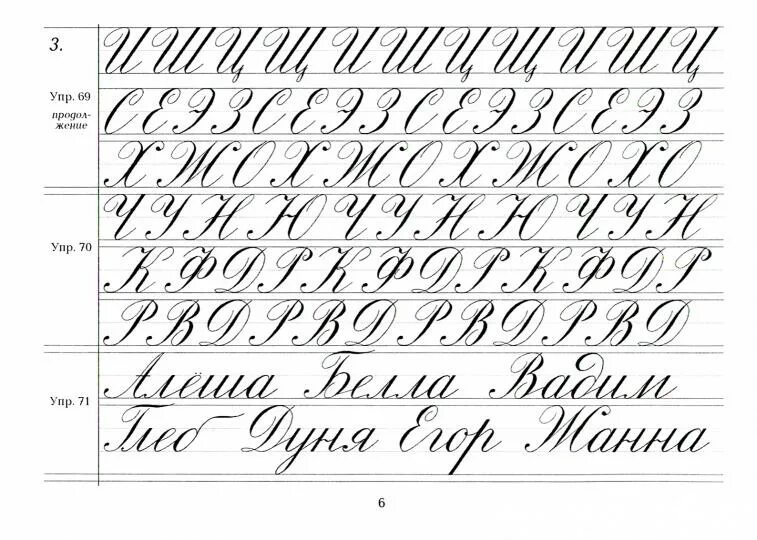 3.
И Ш Ц Щ И Ш Ц Щ И Ш Ц
Упр. 69
продол-
жение
С Е Э З С Е Э З С Е Э З С Е Э З
Х Ж О Х Ж О Х Ж О Х О
Ч У Н Ю Ч У Н Ю Ч У Н
Упр. 70
К Ф Д Р К Ф Д Р К Ф Д Р
Р В Д Р В Д Р В Д Р В Д
Алёша Белла Вадим
Упр. 71
Глеб Дуня Егор Жанна
6